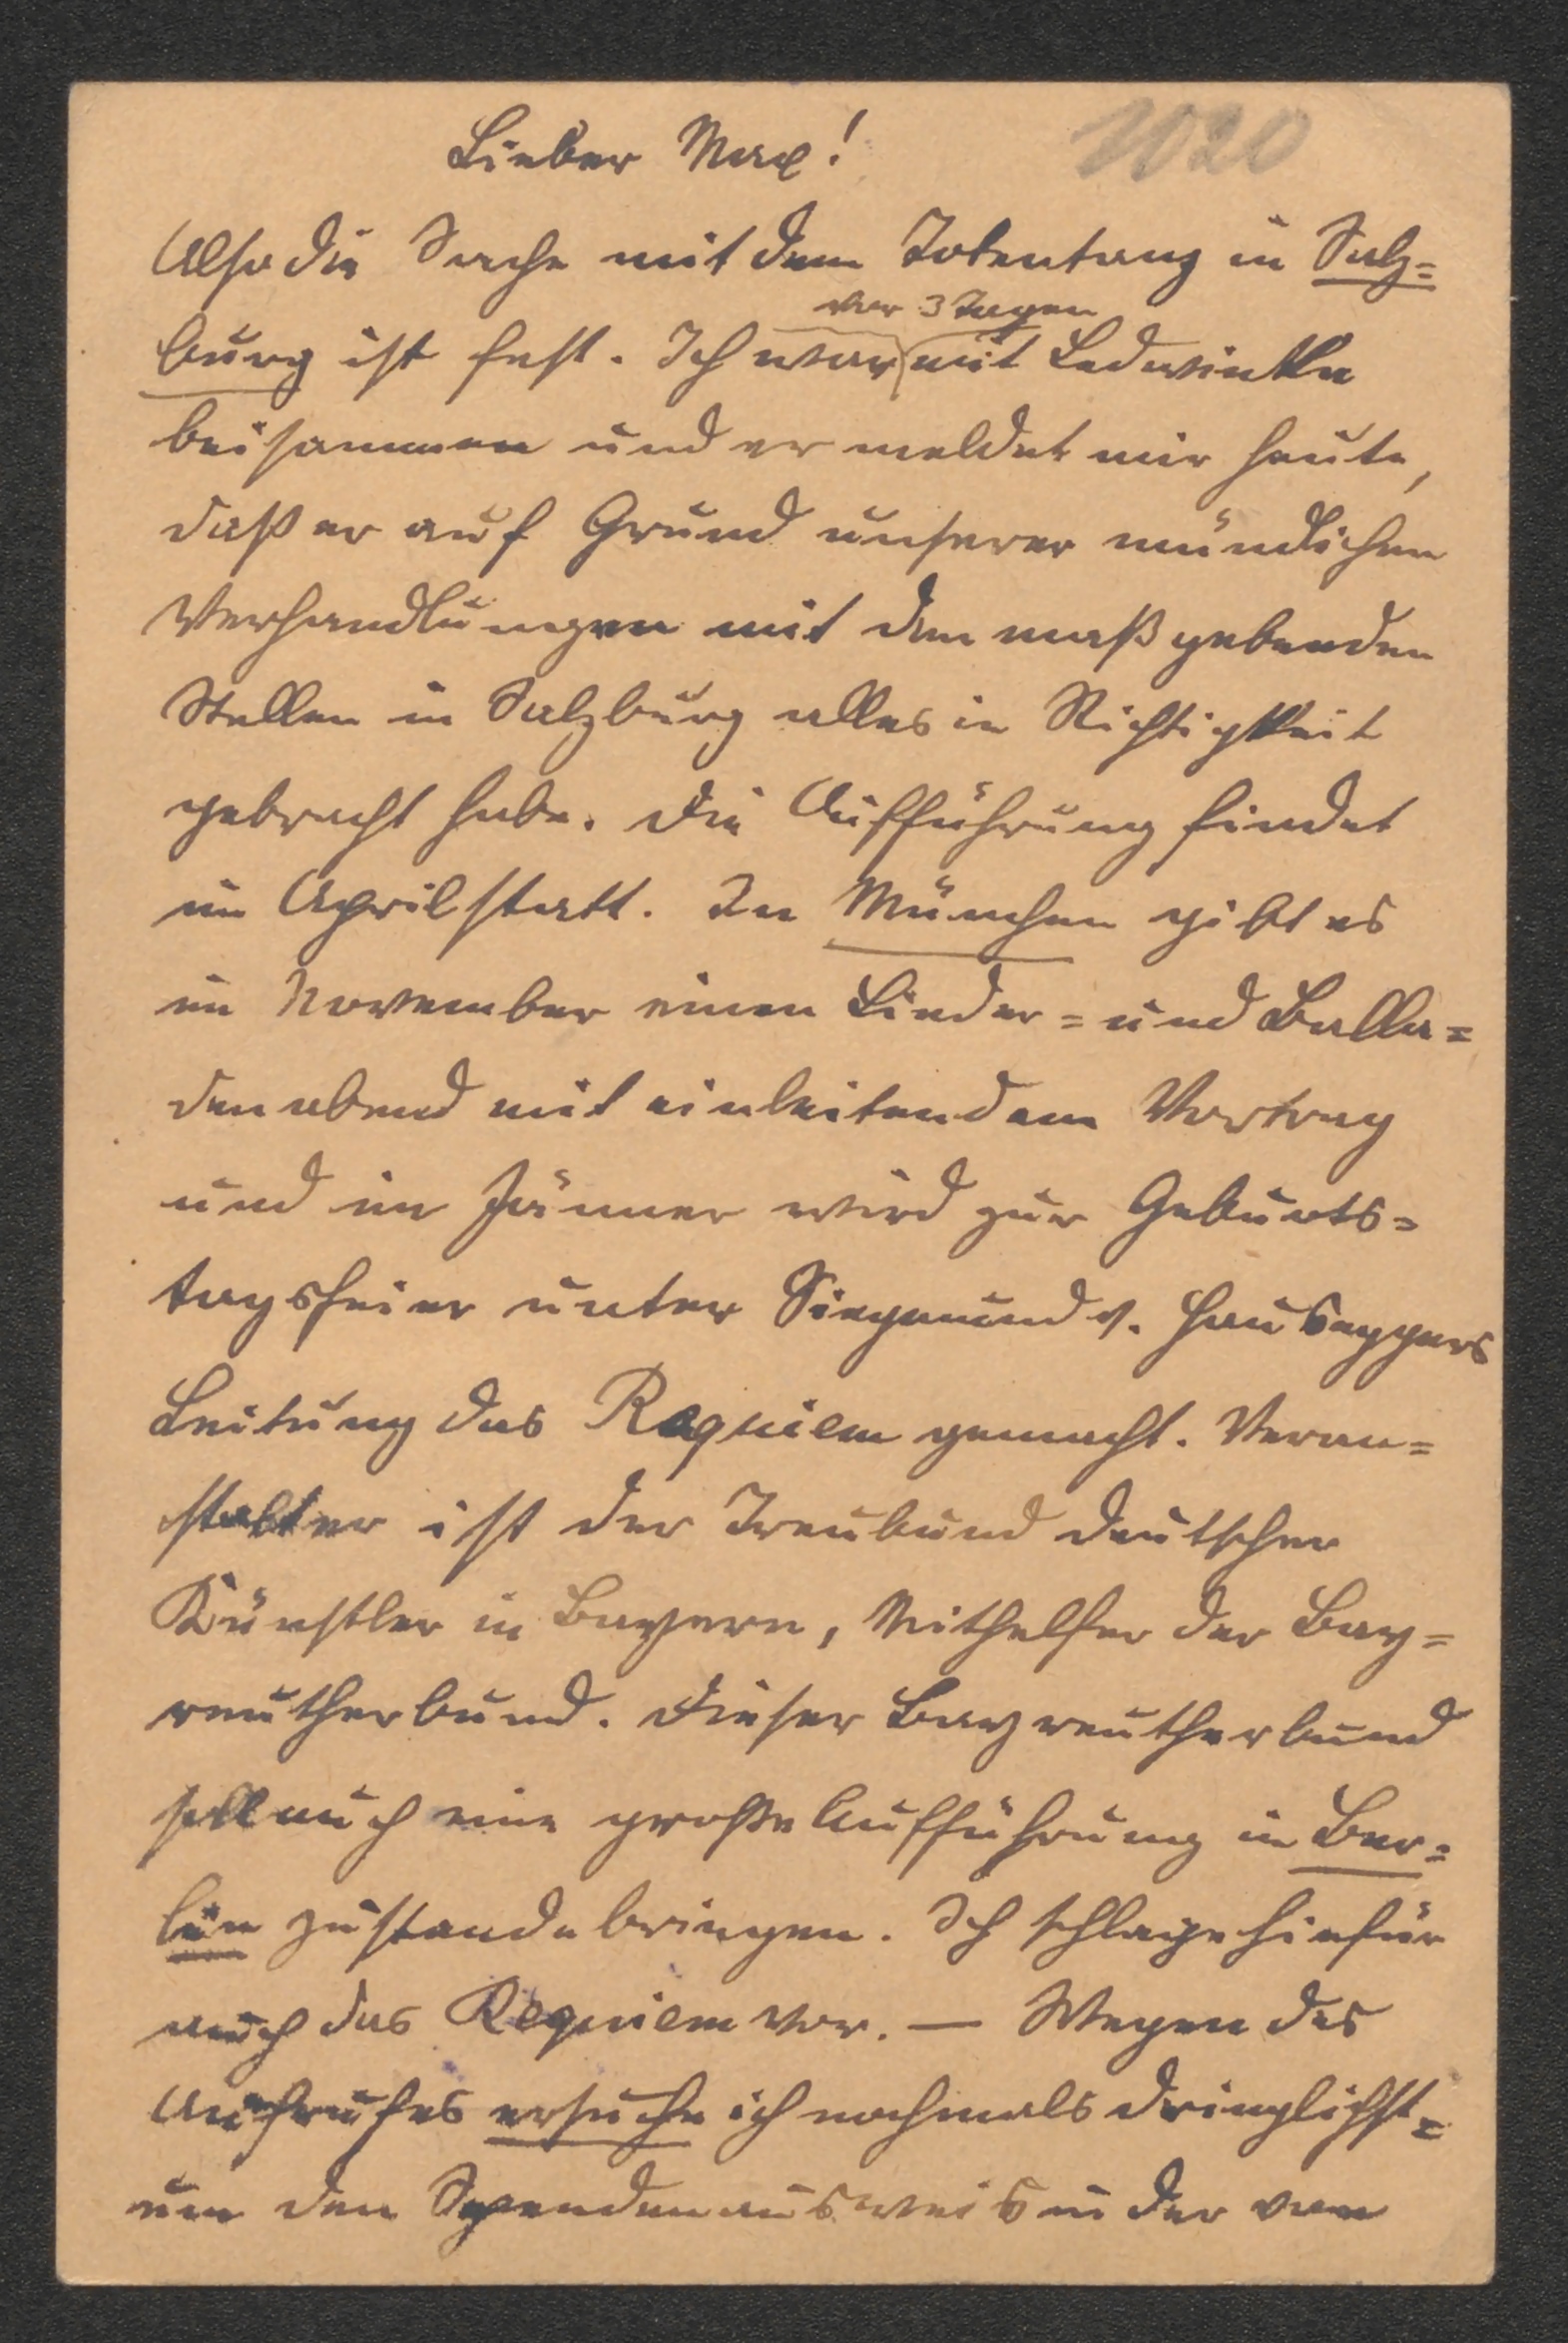 1020
Lieber Max!
Also die Sache mit dem Totentanz in Salz=
vor 3 Tagen
burg ist fest. Ich war mit Ledwinka
beisammen und er meldet mir heute,
daß er auf Grund unserer mündlichen
Verhandlungen mit den maßgebenden
Stellen in Salzburg alles in Richtigkeit
gebracht habe. Die Aufführung findet
im April statt. In München gibt es
im November einen Lieder= und Balla=
denabend mit einleitendem Vortrag
und im Jänner wird zur Geburts=
tagsfeier unter Siegmund v. Hauseggers
Leitung das Requiem gemacht. Veran=
stalter ist der Treubund deutscher
Künstler in Bayern, Mithelfer der Bay=
reutherbund. Dieser Bayreutherbund
soll auch eine große Aufführung in Ber=
lin zustande bringen. Ich schlage hiefür
auch das Requiem vor. — Wegen des
Aufrufes ersuche ich nochmals dringlichst
um den Spendenausweis u der von